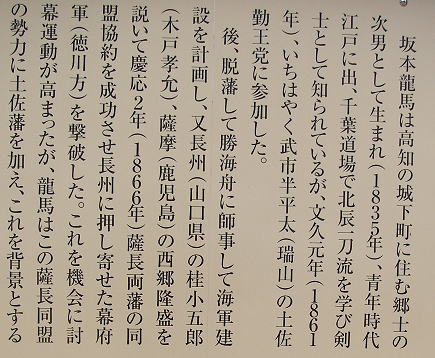 坂本龍馬は高知の城下町に住む郷士の
次男として生まれ(1835年)、青年時代
江戸に出、千葉道場で北辰一刀流を学び剣
士として知られているが、文久元年(1861
年)、いちはやく武市半平太(瑞山)の土佐
勤王党に参加した。
後、脱藩して勝海舟に師事して海軍建
設を計画し、又長州(山口県)の桂小五郎
(木戸孝允)、薩摩(鹿児島)の西郷隆盛を
説いて慶応2年(1866年)薩長両藩の同
盟協約を成功させ長州に押し寄せた幕府
軍(徳川方)を撃破した。これを機会に討
幕運動が高まったが、龍馬はこの薩長同盟
の勢力に土佐藩を加え、これを背景とする